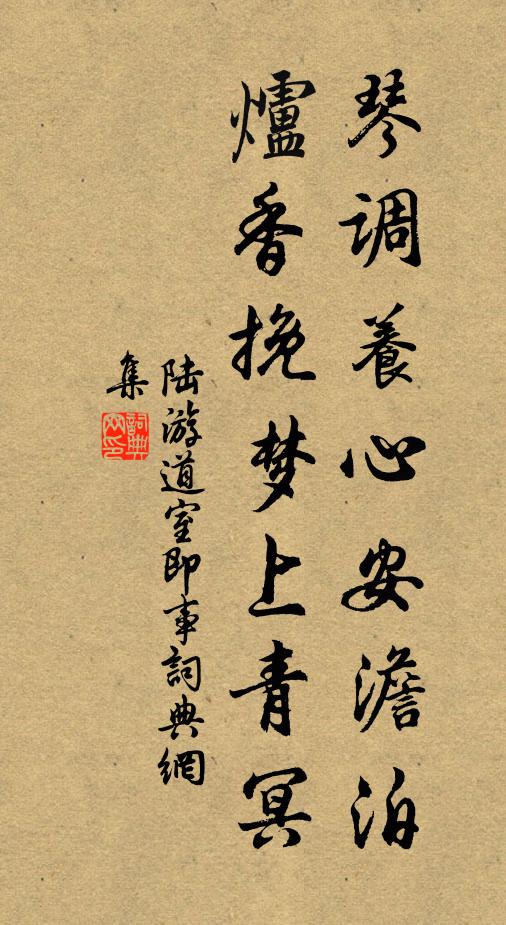 琴调養心安澹泊
爐香挽梦上青冥
陆游道室即事詞典網
集
詞典网印